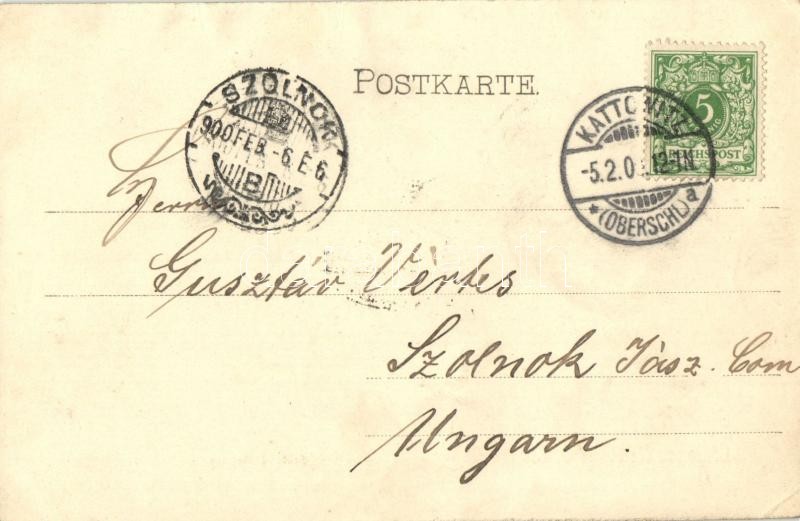 POSTKARTE.
SZOLNOK
900 FEB -6. E. 6.
B
KATTOWITZ
-5.2.0
*(OBERSCHL.) a
5
REICHSPOST
Herrn
Gusztáv Vertes
Szolnok Jász. Com
Ungarn.